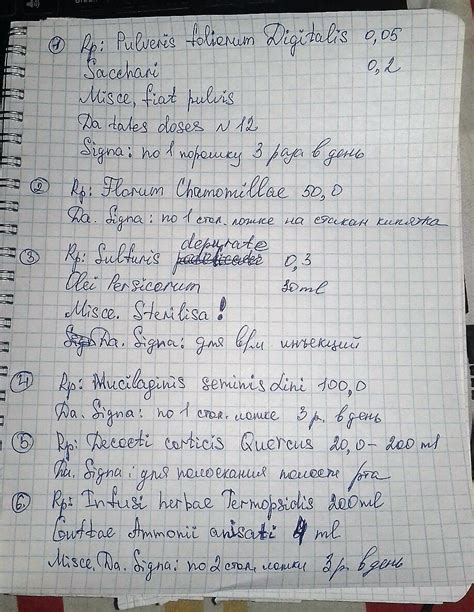 1 Rp: Pulveris foliorum Digitalis 0,05
Sacchari 0,2
Misce, fiat pulvis
Da tales doses N 12
Signa: по 1 порошку 3 раза в день
2 Rp: Florum Chamomillae 50,0
Da. Signa: по 1 стол. ложке на стакан кипятка
depurate
3 Rp: Sulfuris 0,3
Olei Persicorum 30 ml
Misce. Sterilisa!
Da. Signa: для в/м инъекций
4 Rp: Mucilaginis seminis Lini 100,0
Da. Signa: по 1 стол. ложке 3 р. в день
5 Rp: Decocti corticis Quercus 20,0 - 200 ml
Da. Signa: для полоскания полости рта
6. Rp: Infusi herbae Termopsidis 200 ml
Guttae Ammonii anisati 4 ml
Misce. Da. Signa: по 2 стол. ложки 3 р. в день